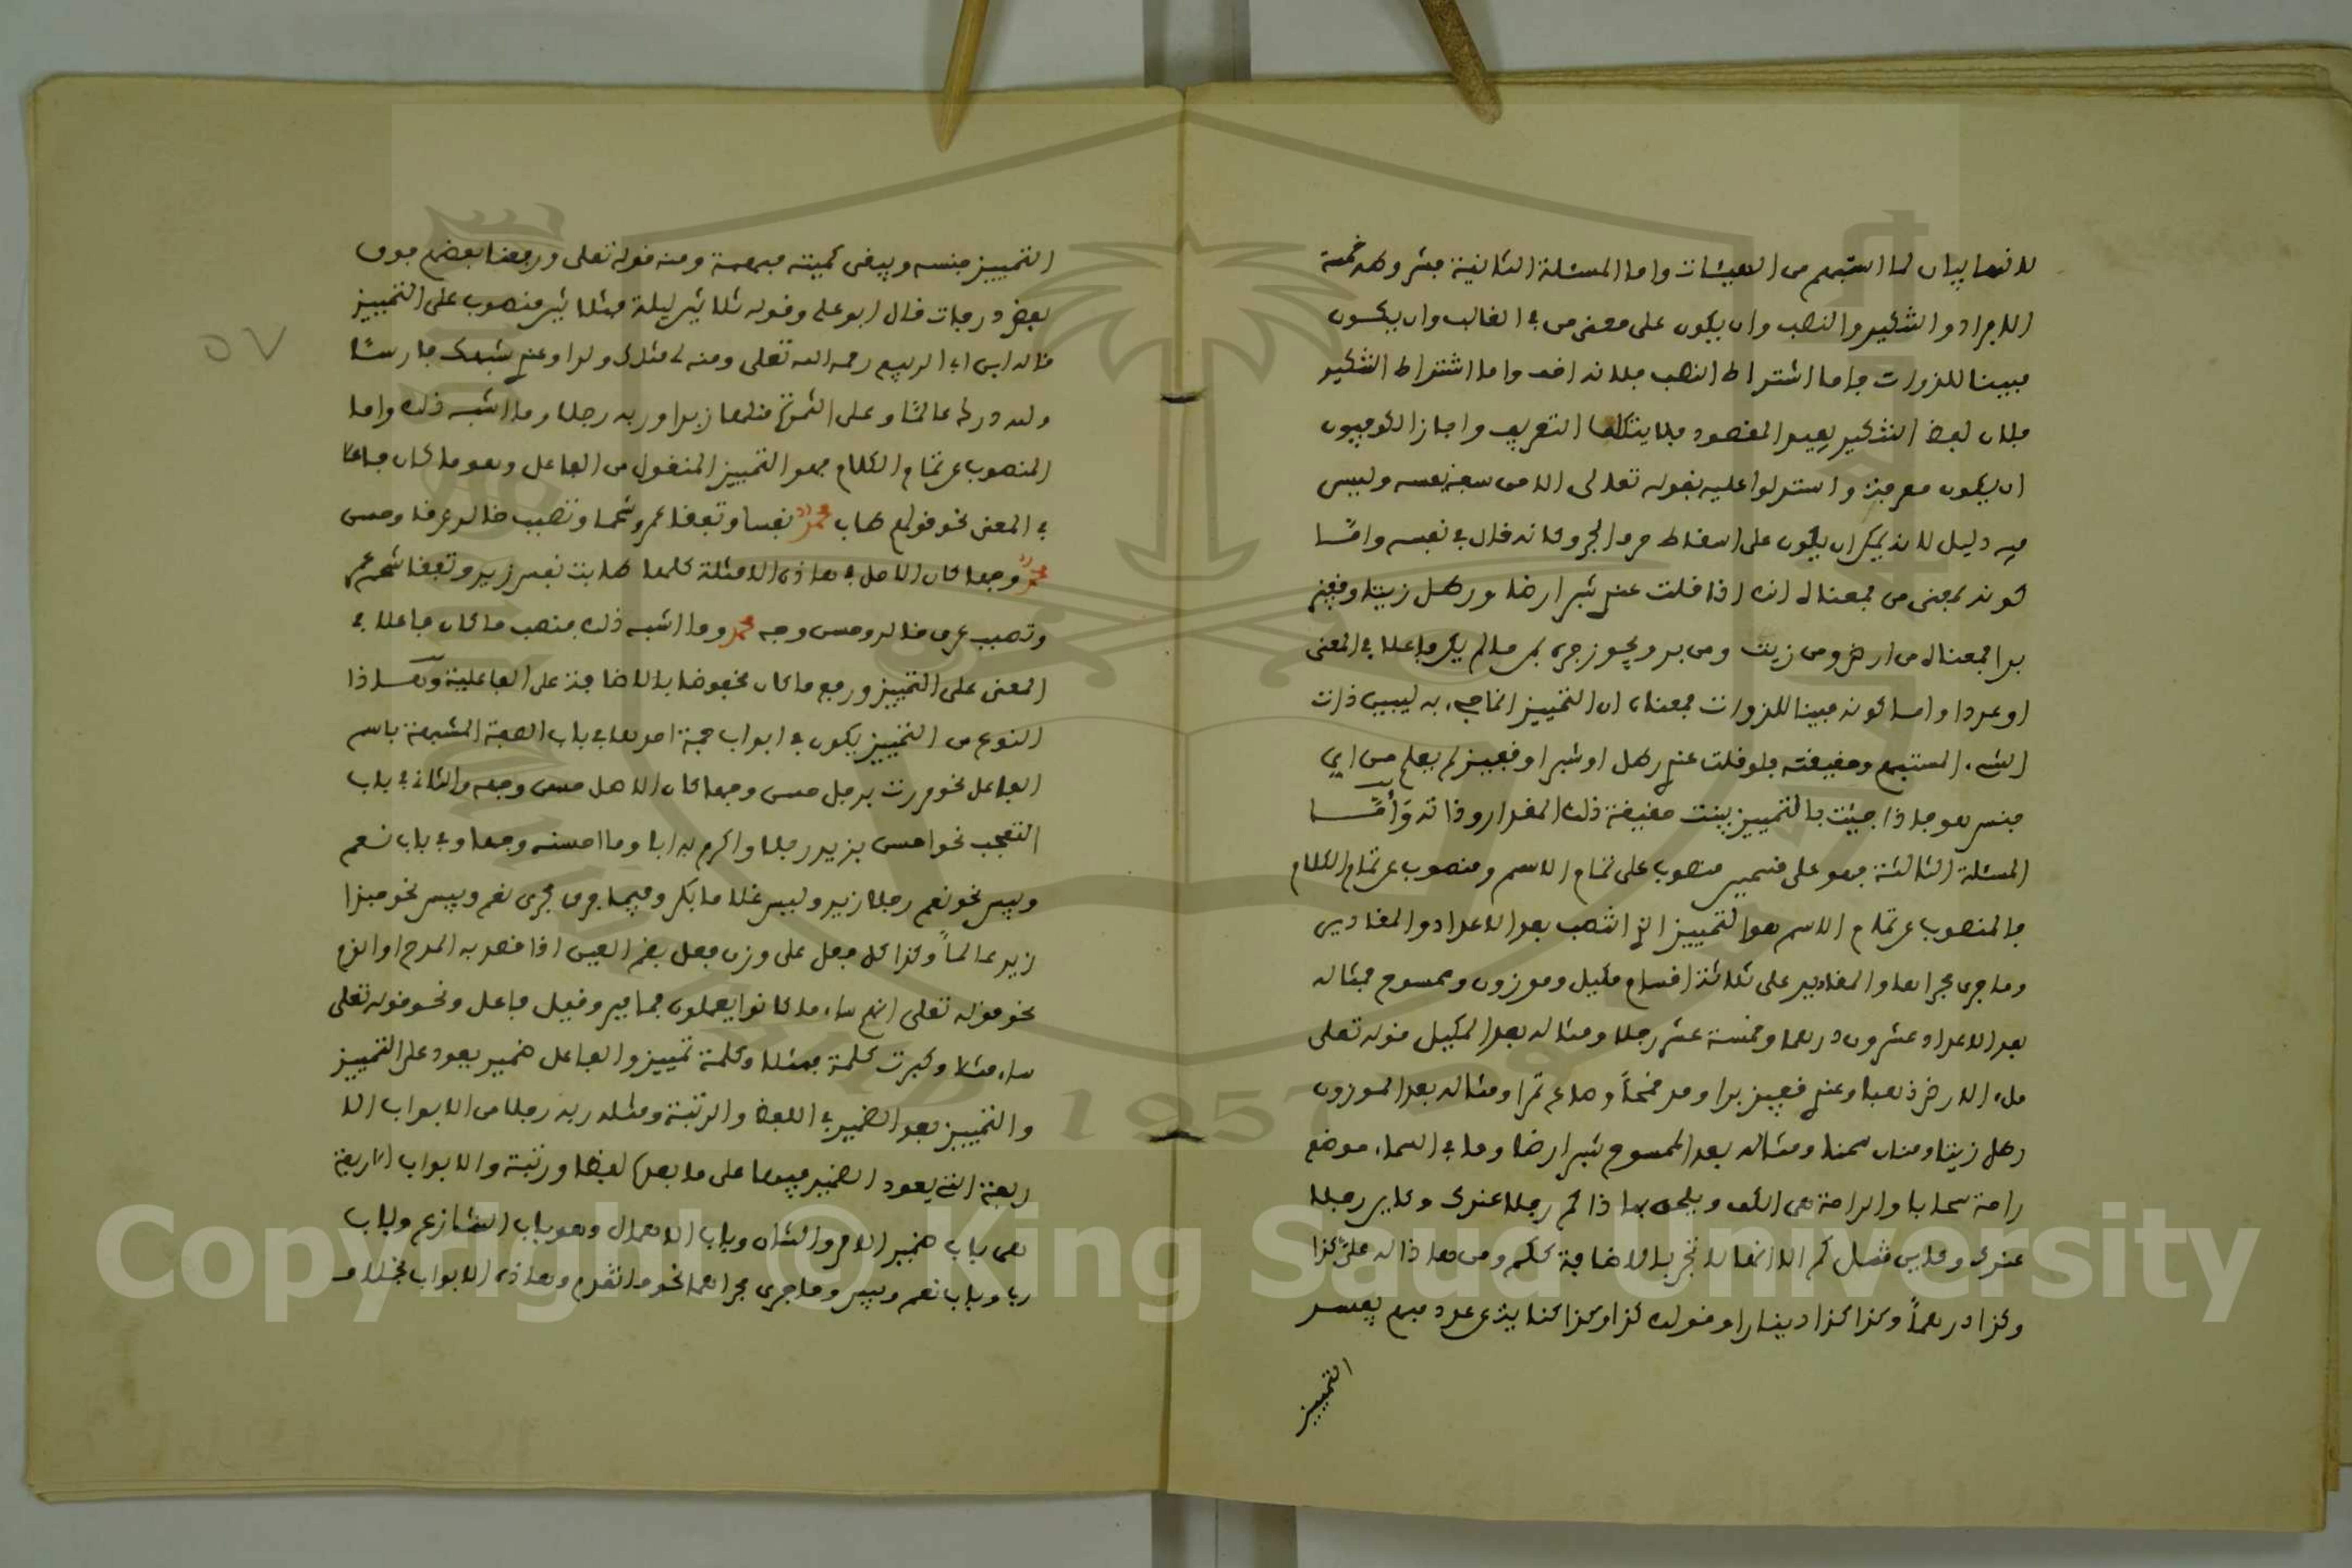 لانها بيان لما استبهم من الهيئات واما المسئلة الثانية فشروطه خمسة
الافراد والتنكير والنصب وان يكون على معنى من في الغالب وان يكون
مبينا للذوات فاما اشتراط النصب فلانه فضلة واما اشتراط التنكير
فلان لفظ التنكير يفيد المقصود فلا يتكلف التعريف واجاز الكوفيون
ان يكون معرفة واستدلوا عليه بقوله تعالى الا من سفه نفسه وليس
فيه دليل لانه يمكن ان يكون على اسقاط حرف الجر وكانه قال في نفسه وامّا
كونه بمعنى من فمعناه انه اذا قلت عندي شبر ارضا ورطل زيتا وقفيز
برا فمعناه من ارض ومن زيت ومن بر ويجوز جره بمن ما لم يكن فاعلا في المعنى
او عددا واما كونه مبينا للذوات فمعناه ان التمييز انما جيء به ليبين ذات
الشيء المستبهم وحقيقته فلو قلت عندي رطل او شبر او قفيز لم يعلم من اي
جنس هو فاذا جيئت بالتمييز بينت حقيقة ذلك المقدار وذاته وَأمّا
المسئلة الثالثة فهو على قسمين منصوب على تمام الاسم ومنصوب عن تمام الكلام
فالمنصوب عن تمام الاسم هو التمييز الذي انتصب بعد الاعداد والمقادير
وما جرى مجراها والمقادير على ثلاثة اقسام مكيل وموزون وممسوح فمثاله
بعد الاعداد عشرون درهما وخمسة عشر رجلا ومثاله بعد المكيل قوله تعلى
ملء الارض ذهبا وعندي قفيز برا ومد قمحاً وصاع تمرا ومثاله بعد الموزون
رطل زيتا ومنان سمنا ومثاله بعد الممسوح شبر ارضا وما في السماء موضع
راحة سحابا والراحة هي الكف ويلحق بهاذا كم رجلا عندك وكاين رجلا
عندك وكاين مثل كم الا انها لا تجر بالاضافة ككم ومن هاذا له عليّ كذا
وكذا درهماً وكذا كذا دينارا وقوله كذا وكذا كناية عن عدد مبهم يفسر
التمييز
التمييز جنسه ويبقى كميته مبهمة ومنه قوله تعلى ورفعنا بعضهم فوق
بعض درجات قال ابو علي وقوله ثلاثين ليلة فثلاثين منصوب على التمييز
قاله ابن ابي الربيع رحمه الله تعلى ومنه لي مثلك ولدا وعندي شبهك فارسًا
ولله درك عالمًا وعلى التمرة مثلها زبدا وربه رجلا وما اشبه ذلك واما
المنصوب عن تمام الكلام فهو التمييز المنقول من الفاعل وهو ما كان فاعلا
في المعنى نحو قولك طاب محمد نفسا وتفقأ عمرو شحما وتصبب خالد عرقا وحسن
محمد وجها كان الاصل في هاذه الامثلة كلها طابت نفس زيد وتفقأ شحم عمرو
وتصبب عرق خالد وحسن وجه محمد وما اشبه ذلك فنصب ما كان فاعلا في
المعنى على التمييز ورفع ما كان مخفوضا بالاضافة على الفاعلية وهاذا
النوع من التمييز يكون في ابواب خمسة احدها في باب الصفة المشبهة باسم
الفاعل نحو مررت برجل حسن وجها كان الاصل حسن وجهه والثاني في باب
التعجب نحو احسن بزيد رجلا واكرم به ابا وما احسنه وجها وفي باب نعم
وبيس نحو نعم رجلا زيد وبيس غلاما بكر وفيما جرى مجرى نعم وبيس نحو حبذا
زيد عالماً وكذا كل فعل على وزن فعل بضم العين اذا قصد به المدح او الذم
نحو قوله تعلى انهم ساء ما كانوا يعملون فما مير وفيل فاعل ونحو قوله تعلى
ساء مثلا وكبرت كلمة فمثلا وكلمة تمييز والفاعل ضمير يعود على التمييز
والتمييز بعد الضمير في اللفظ والرتبة ومثله ربه رجلا من الابواب الا
ربعة التي يعود الضمير فيها على ما بعده لفظا ورتبة والابواب الاربعة
هي باب ضمير الامر والشان وباب الاعمال وهو باب التنازع وباب
رب وباب نعم وبيس وما جرى مجراهما نحو ما تقدم وهاذه الابواب بخلاف
٥٧
Copyright © King Saud University
1957